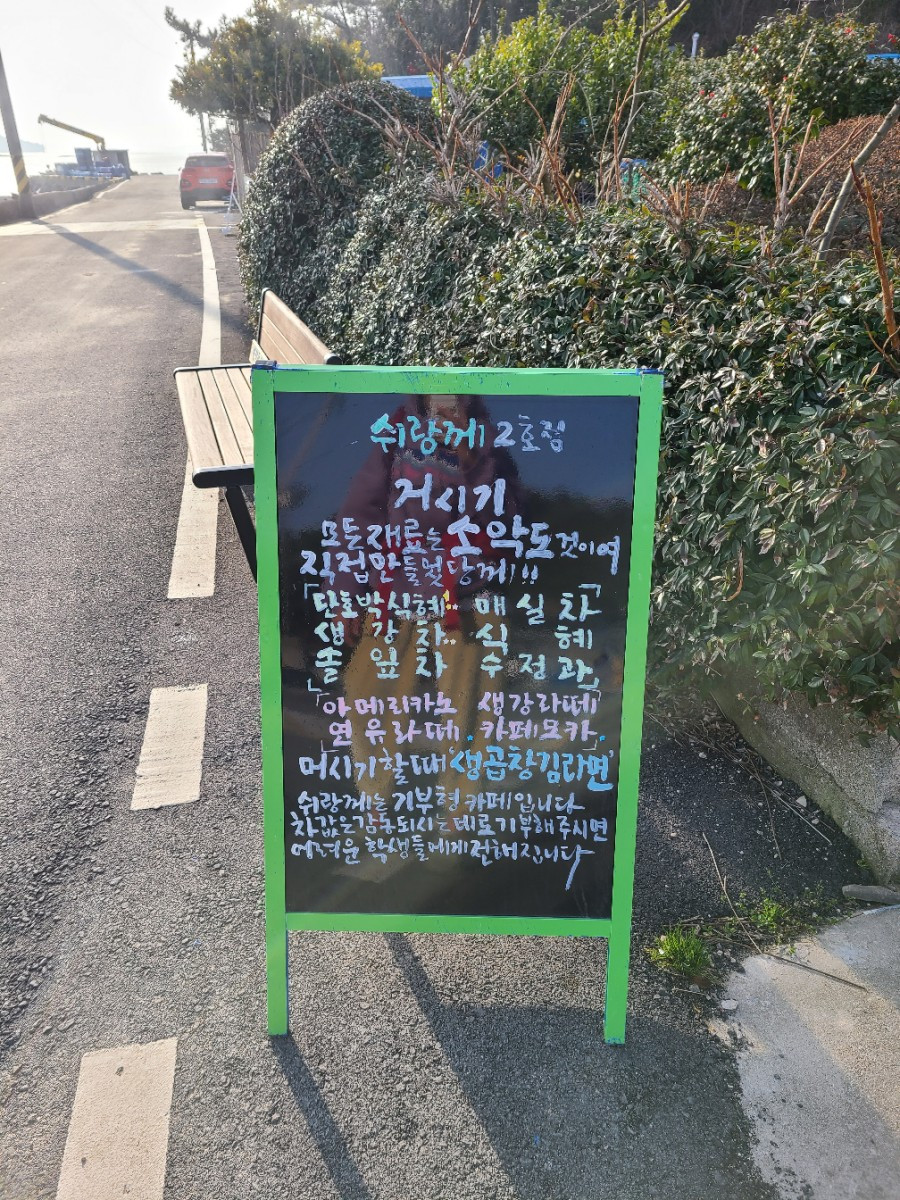 쉬랑께 2호점
거시기
모든재료는 소악도것이여
직접만들었당께!!
「단호박식혜.. 매실차
생강차.. 식혜
솔잎차 수정과」
「아메리카노 생강라떼
연유라떼. 카페모카」
머시기할때 '생곱창김라면'
쉬랑께는 기부형 카페입니다
차값은감동되시는데로기부해주시면
어려운 학생들에게전해집니다